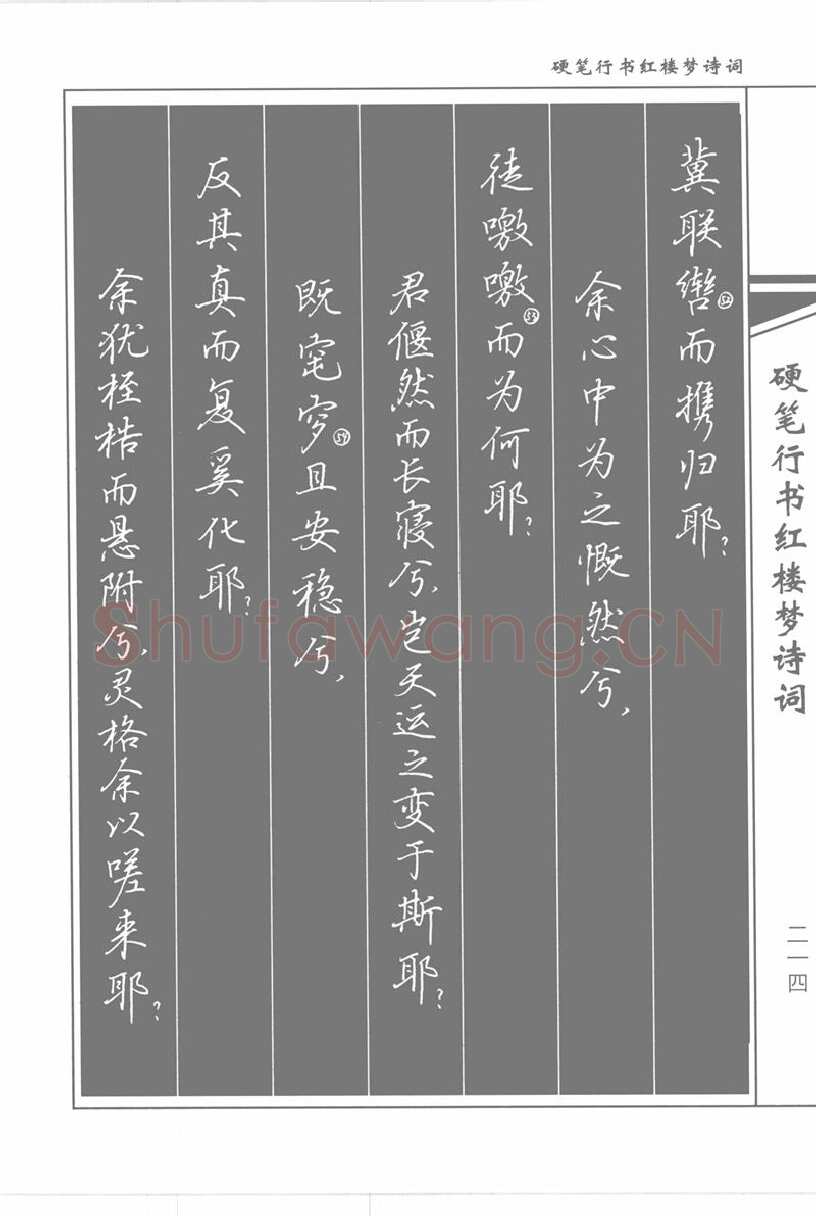 硬笔行书红楼梦诗词
冀联辔㊾而携归耶?
余心中为之慨然兮,
徒噭噭㊼而为何耶?
君偃然而长寝兮,岂天运之变于斯耶?
既窀穸㊾且安稳兮,
反其真而复奚化耶?
余犹桎梏而悬附兮,灵格余以嗟来耶?
硬笔行书红楼梦诗词
二一四
Shufawang.CN